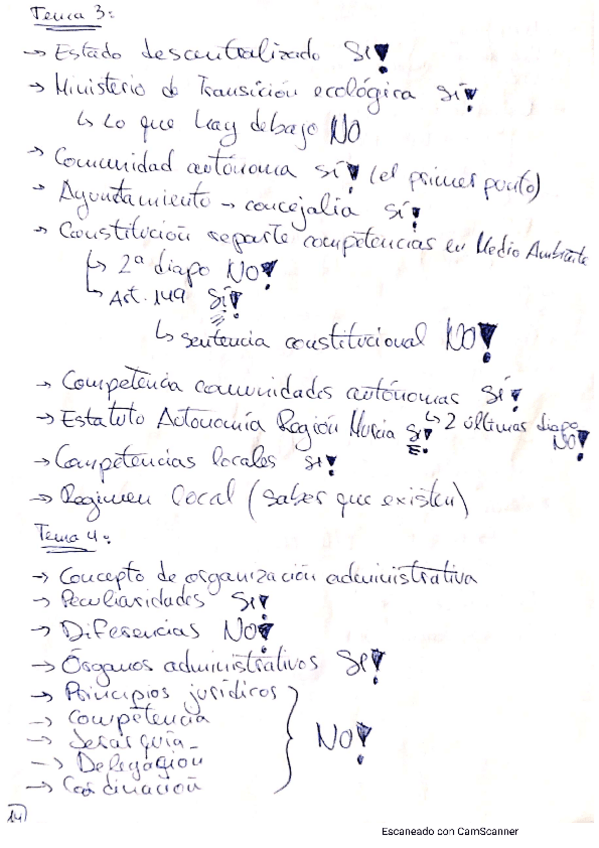 Tema 3:
→ Estado descentralizado SI!
→ Ministerio de Transición ecológica SÍ!
↳ Lo que hay debajo NO
→ Comunidad autónoma SÍ! (el primer punto)
→ Ayuntamiento → concejalía SÍ!
→ Constitución reparte competencias en Medio Ambiente
↳ 2ª diapo NO!
↳ Art. 149 SÍ!
↳ sentencia constitucional NO!
→ Competencia comunidades autónomas SÍ!
→ Estatuto Autonomía Región Murcia SI! ↳ 2 últimas diapo NO!
→ Competencias locales SI!
→ Regimen local (saber que existen)
Tema 4:
→ Concepto de organización administrativa
→ Peculiaridades SI!
→ Diferencias NO!
→ Órganos administrativos SI!
→ Principios jurídicos
→ Competencia
→ Jerarquía
→ Delegación
→ Coordinación
NO!
14
Escaneado con CamScanner